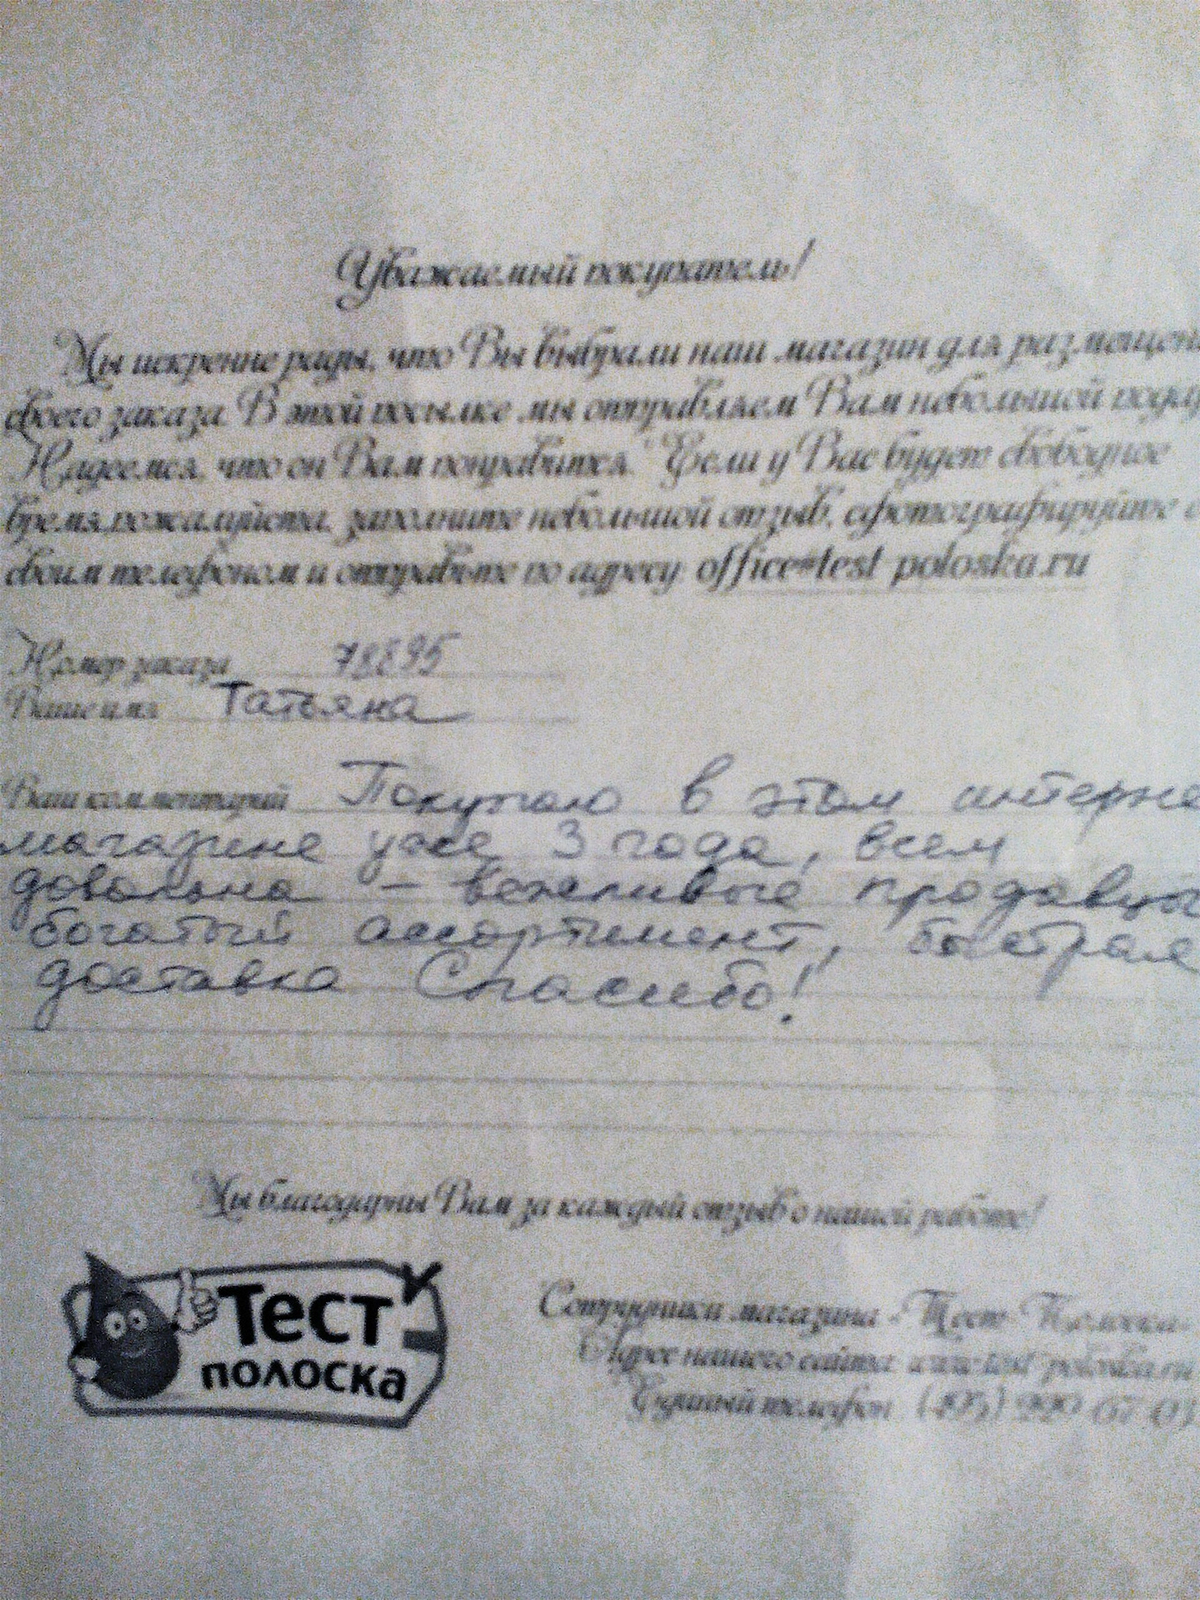 Уважаемый покупатель!
Мы искренне рады, что Вы выбрали наш магазин для размещен
своего заказа. В этой посылке мы отправляем Вам небольшой пода
Надеемся, что он Вам понравится. Если у Вас будет свободное
время, пожалуйста, заполните небольшой отзыв, сфотографируйте е
своим телефоном и отправьте по адресу: office@test-poloska.ru
Номер заказа 78895
Ваше имя Татьяна
Ваш комментарий Покупаю в этом интерне
магазине уже 3 года, всем
довольна – вежливые продавцы
богатый ассортимент, быстрая
доставка Спасибо!
Мы благодарны Вам за каждый отзыв о нашей работе!
Тест
полоска
Сотрудники магазина «Тест-Полоска»
Адрес нашего сайта: www.test-poloska.ru
Единый телефон: (495)